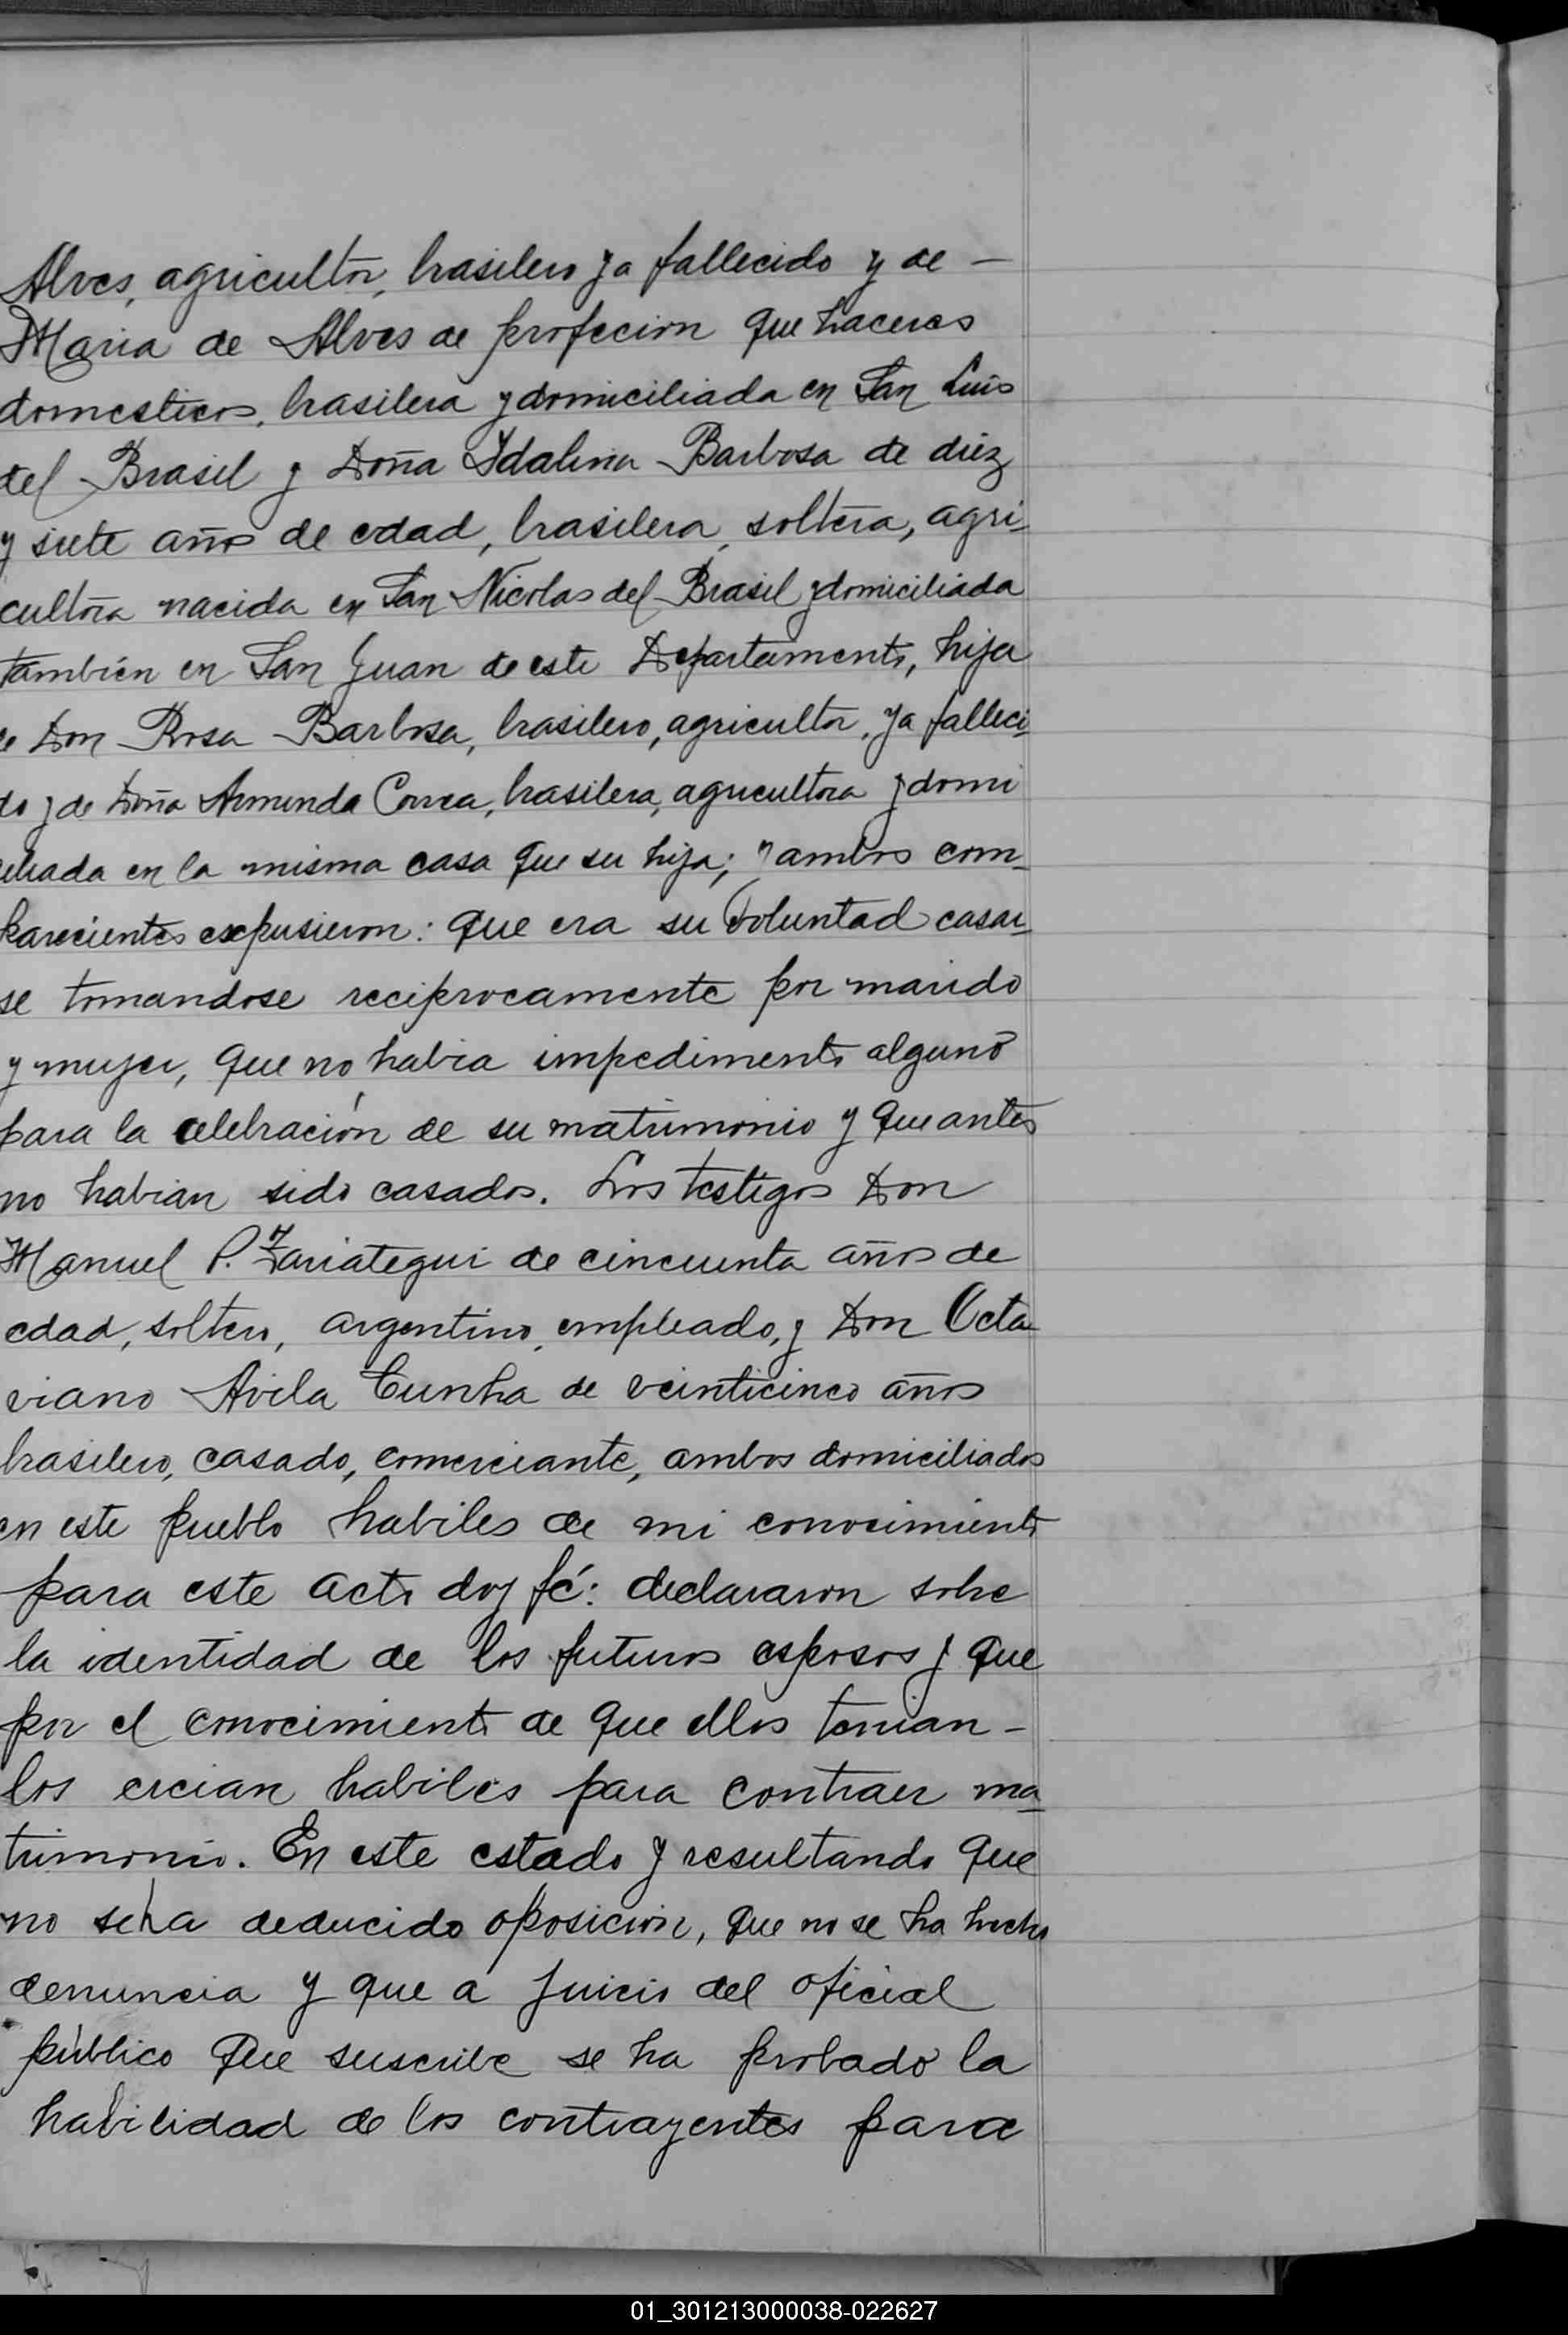 Alves, agricultor, brasilero ya fallecido y de —
Maria de Alves de profecion que haceres
domesticos, brasilera y domiciliada en San Luis
del Brasil y Doña Idalina Barbosa de diez
y siete años de edad, brasilera, soltera, agri-
cultora nacida en San Nicolas del Brasil y domiciliada
tambien en San Juan de este Departamento, hija
de Don Rosa Barbosa, brasilero, agricultor, ya falleci-
do y de Doña Armenda Correa, brasilera, agricultora y domi
ciliada en la misma casa que su hija; y ambos com-
parecientes expusieron: que era su voluntad casar-
se tomandose reciprocamente por marido
y mujer, que no habia impedimento alguno
para la celebración de su matrimonio y que antes
no habian sido casados. Los testigos Don
Manuel P. Zariategui de cincuenta años de
edad, soltero, argentino, empleado, y Don Octa
viano Avila Cunha de veinticinco años
brasilero, casado, comerciante, ambos domiciliados
en este pueblo habiles de mi conocimiento
para este acto doy fé: declararon sobre
la identidad de los futuros esposos y que
por el conocimiento de que ellos tenian –
los creian habiles para contraer ma-
trimonio. En este estado y resultando que
no se ha deducido oposicion, que no se ha hecho
denuncia y que a juicio del oficial
público que suscribe se ha probado la
habilidad de los contrayentes para
01_301213000038-022627